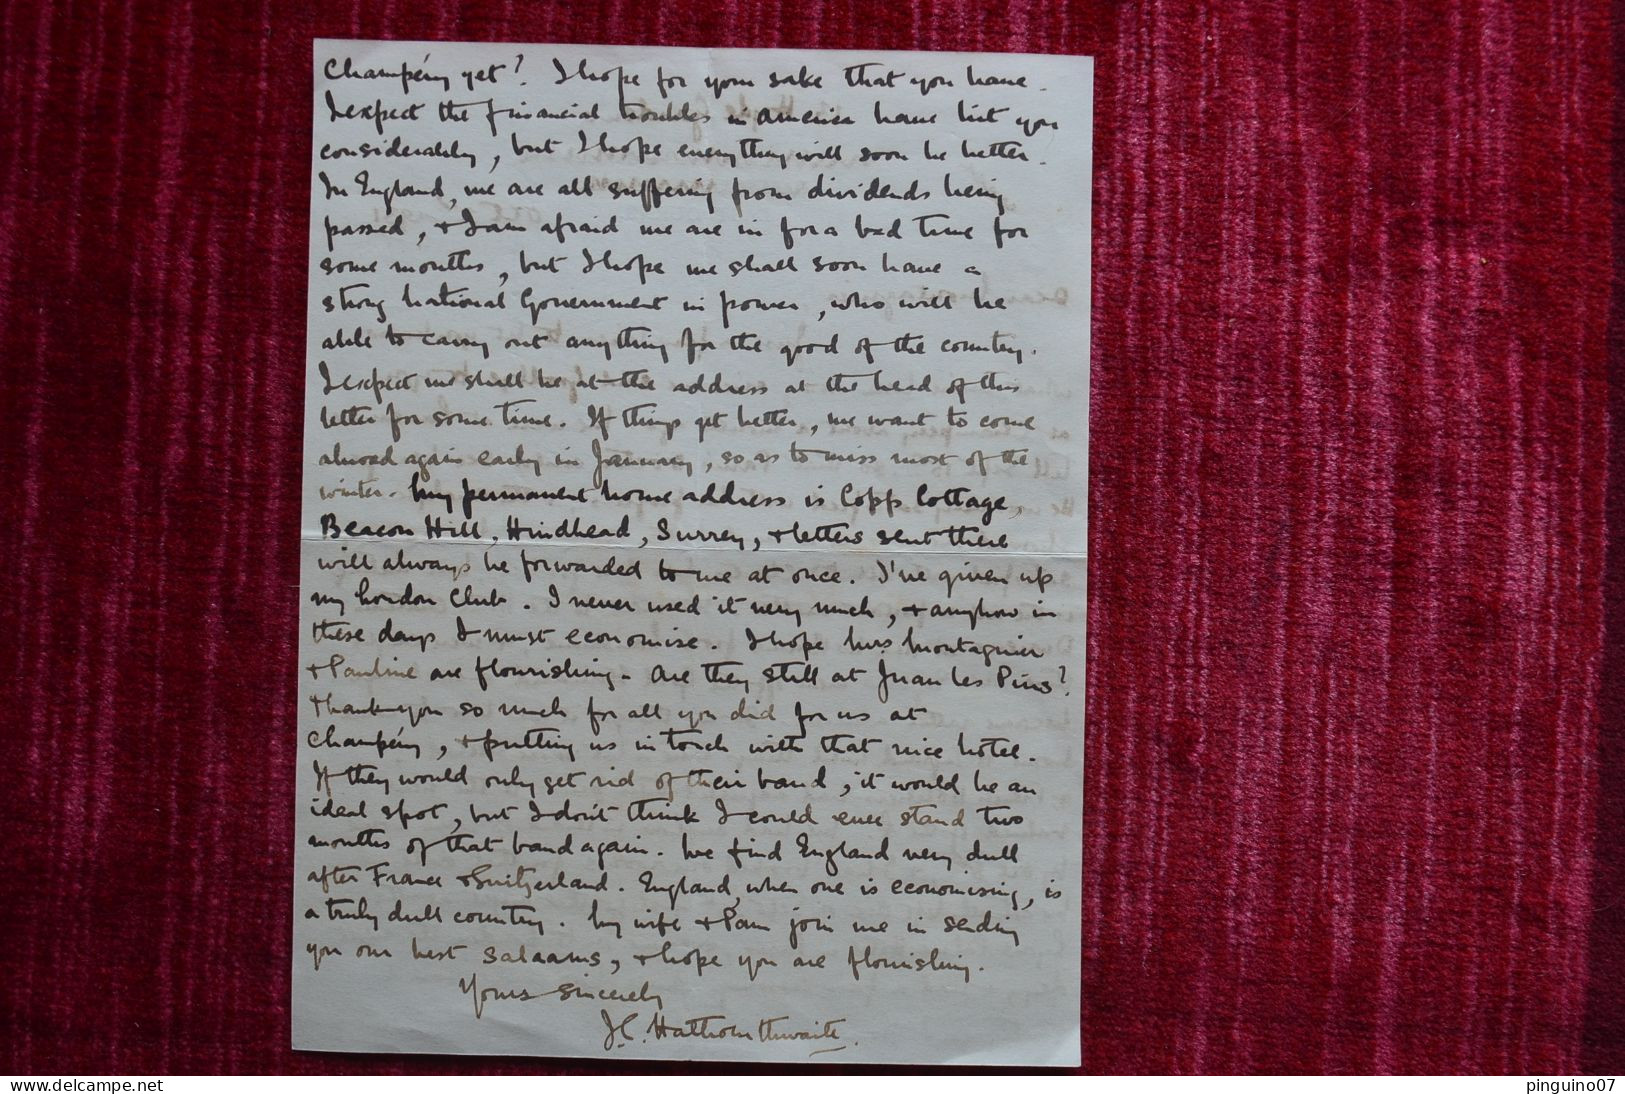 Champéry yet? I hope for your sake that you have.
I expect the financial troubles in America have hit you
considerably, but I hope everything will soon be better.
In England, we are all suffering from dividends being
passed, + I am afraid we are in for a bad time for
some months, but I hope we shall soon have a
strong National Government in power, who will be
able to carry out anything for the good of the country.
I expect we shall be at the address at the head of this
letter for some time. If things get better, we want to come
abroad again early in January, so as to miss most of the
winter. My permanent home address is Copp Cottage,
Beacon Hill, Hindhead, Surrey, + letters sent there
will always be forwarded to me at once. I've given up
my London Club. I never used it very much, + anyhow in
these days I must economise. I hope Mrs Montagnier
+ Pauline are flourishing. Are they still at Juan Les Pins?
Thank you so much for all you did for us at
Champéry, + putting us in touch with that nice hotel.
If they would only get rid of their band, it would be an
ideal spot, but I don't think I could ever stand two
months of that band again. We find England very dull
after France + Switzerland. England, when one is economising, is
a truly dull country. My wife + Pam join me in sending
you our best salaams, + hope you are flourishing.
Yours sincerely
J.C. Hathornthwaite.
delcampe.net
pinguino07